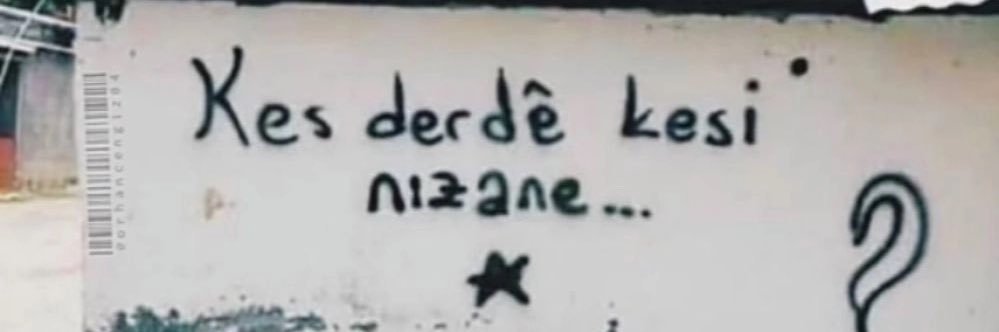 Kes derdê kesi
nızane...
?